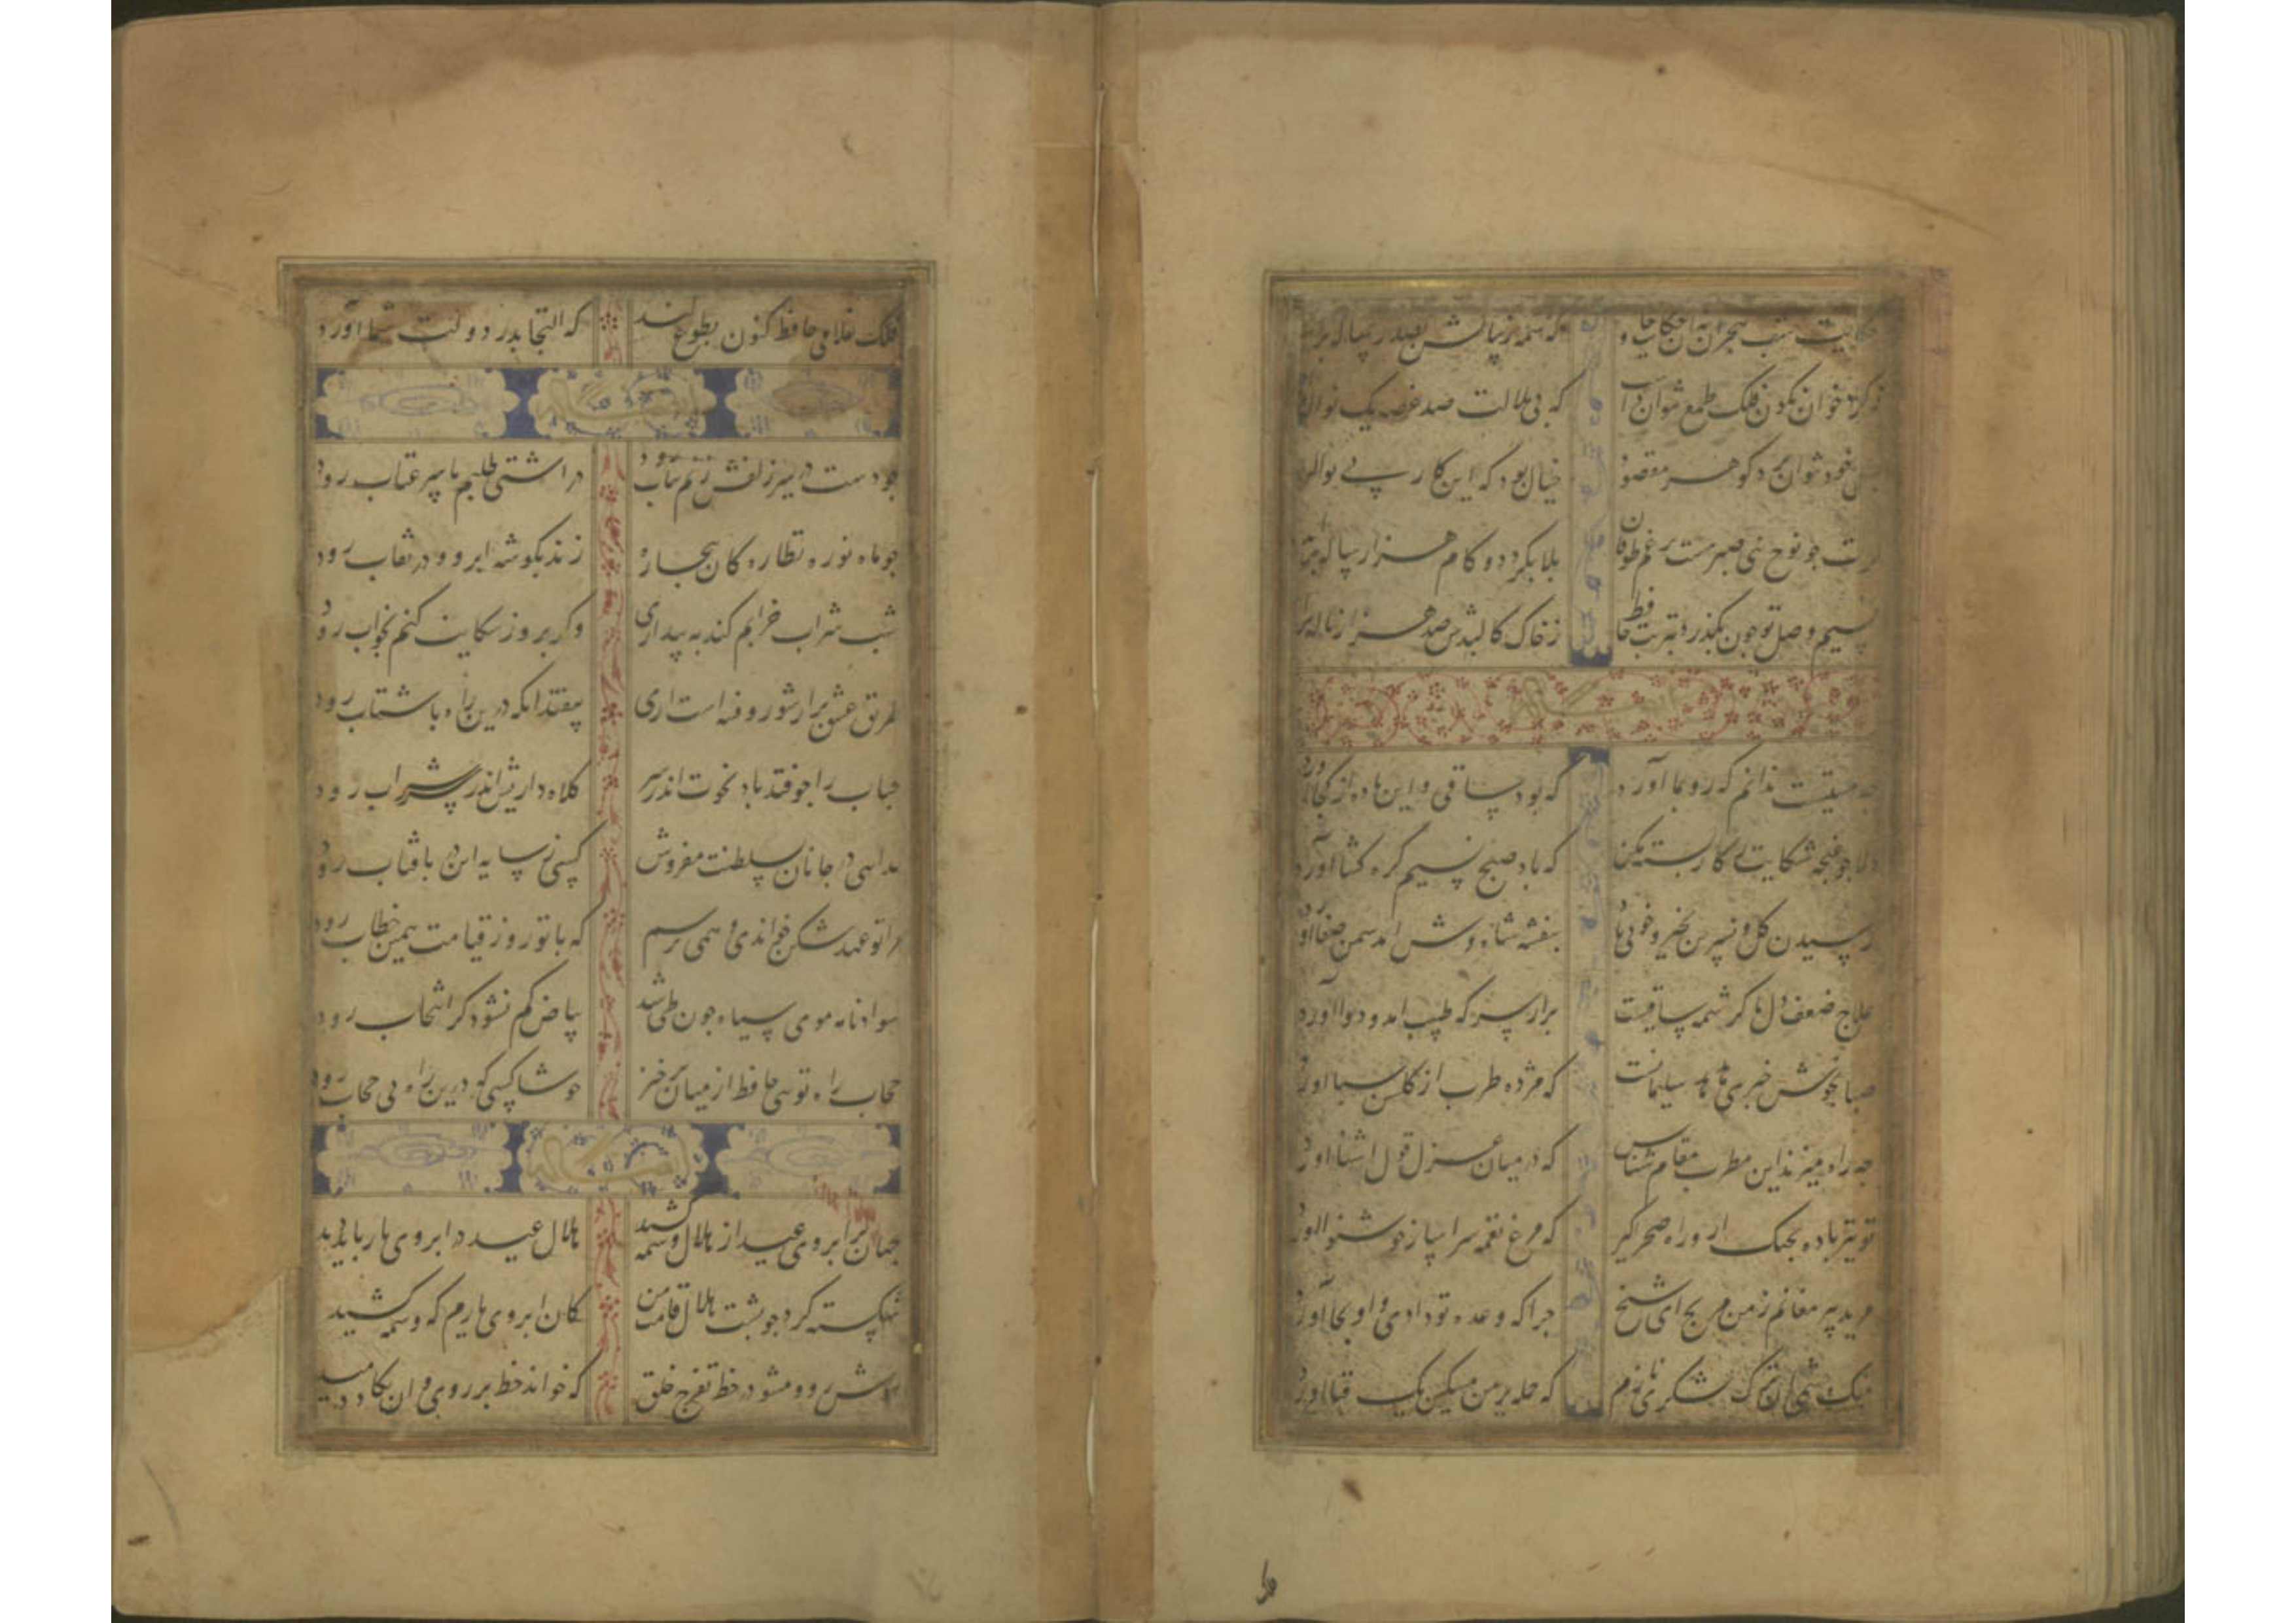 حکایت شب هجران نه آن حکایت که شمه ز بیانش بصد رساله برآید
ز کرد خوان نکون فلک طمع نتوان داشت که بی ملالت صد غصه یک نواله
خود نتوان برد کوهر مقصود خیال بود که این کار بی حواله
کرت جو نوح نبی صبر هست بر غم طوفان بلا بکردد و کام هزار ساله برآید
نسیم وصل تو جون بکذرد بتربت حافظ ز خاک کالبدش صد هزار ناله برآید
جه مستیست ندانم که رو بما آورد که بود ساقی و این باده از کجا آورد
دلا جو غنجه شکایت ز کار بسته مکن که باد صبح نسیم کره کشا آورد
رسیدن کل و نسرین بخیر و خوبی باد بنفشه شاد و کش آمد سمن صفا آورد
علاج ضعف دل ما کرشمه ساقیست برآر سر که طبیب آمد و دوا آورد
صبا بخوش خبری هدهد سلیمانست که مژده طرب از کلشن سبا آورد
جه راه میزند این مطرب مقام شناس که در میان غزل قول آشنا آورد
تو نیز باده بجنک آر و راه صحرا کیر که مرغ نغمه سرا ساز خوش نوا آورد
مرید پیر مغانم ز من مرنج ای شیخ جرا که وعده تو دادی و او بجا آورد
تنک چشمی آن ترک لشکری نازم که حمله بر من مسکین یک قبا آورد
فلک غلامی حافظ کنون بطوع کند که التجا بدر دولت شما آورد
جو دست در سر زلفش زنم بتاب رود ور آشتی طلبم با سر عتاب رود
جو ماه نو ره نظاره کان بیجاره زند بکوشه ابرو و در نقاب رود
شب شراب خرابم کند به بیداری وکر بروز شکایت کنم بخواب رود
طریق عشق پر آشوب و فتنه است ای بیفتد آنکه درین راه با شتاب رود
حباب را جو فتد باد نخوت اندر سر کلاه داریش اندر سر شراب رود
کدایی در جانان بسلطنت مفروش کسی ز سایه این در بآفتاب رود
مرا تو عهد شکن خوانده ای و همی ترسم که با تو روز قیامت همین خطاب رود
سواد نامه موی سیاه جون طی شد بیاض کم نشود کر انتخاب رود
حجاب راه تویی حافظ از میان برخیز خوشا کسی که درین راه بی حجاب رود
جهان بر ابروی عید از هلال وسمه کشید هلال عید در ابروی یار باید دید
شکسته کرد جو بشت هلال قامت من کمان ابروی یارم که وسمه کشید
مبوش رو و مشو در خط تفرج خلق که خواند خط بر روی و ان یکاد دمید